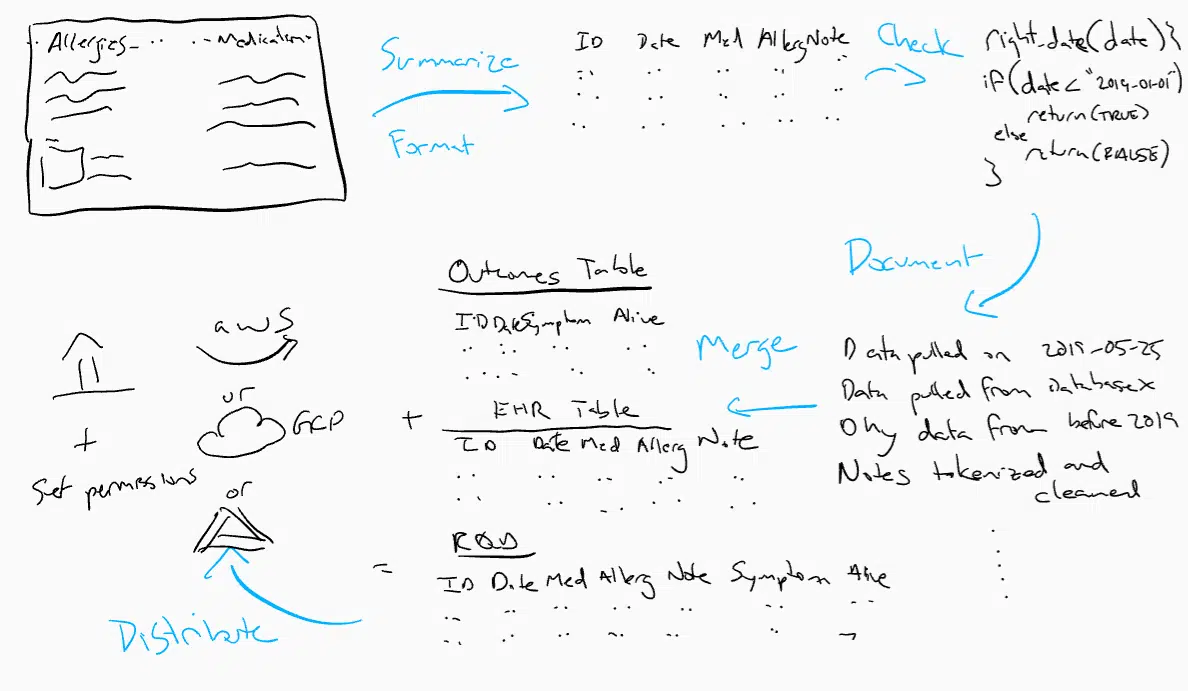 Allergies
Medication
Summarize
Format
ID Date Med Allerg Note
Check
right_date(date){
if(date < "2019-01-01")
return(TRUE)
else
return(FALSE)
}
Document
Data pulled on 2019-05-25
Data pulled from Database X
Only data from before 2019
Notes tokenized and
cleaned
Merge
Outcomes Table
ID Date Symptom Alive
+
EHR Table
ID Date Med Allerg Note
=
RQD
ID Date Med Allerg Note Symptom Alive
Distribute
aws
or
GCP
or
+
Set permissions